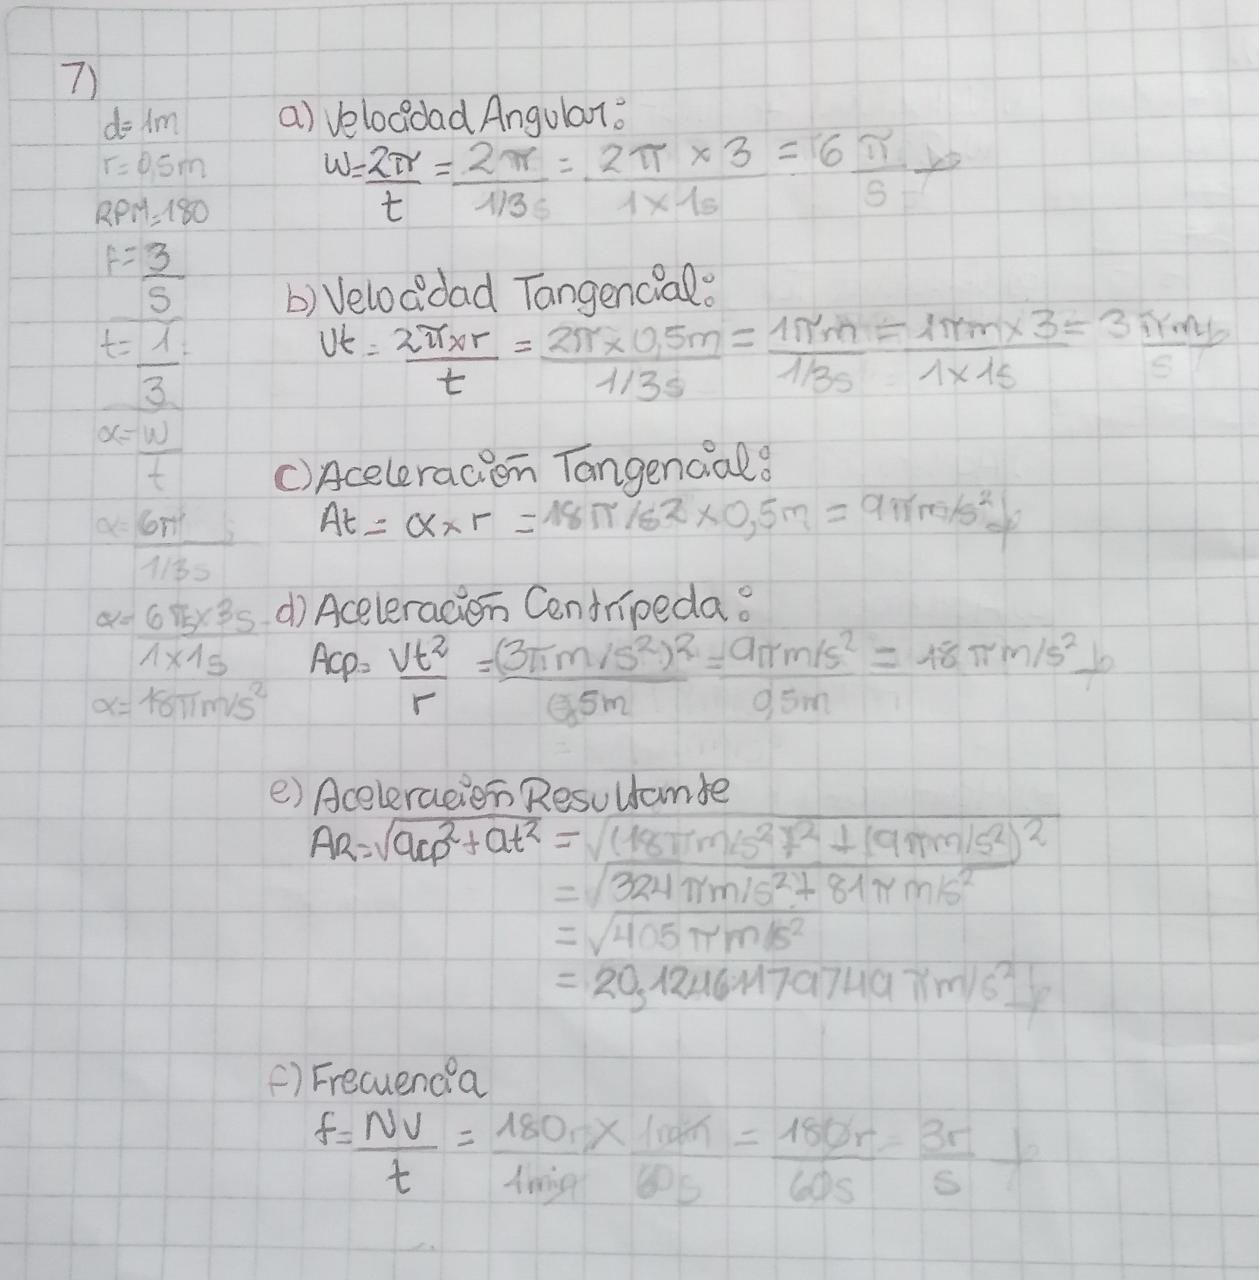 7)
d=1m
r=0,5m
RPM=180
f=3/s
t=1/3
α=w/t
α=6π/1/3s
α=6π/s×3s/1×1s
α=18πm/s²
a) Velocidad Angular:
W=2π/t = 2π/1/3s = 2π × 3/1×1s = 6π/s
b) Velocidad Tangencial:
Vt = 2π×r/t = 2π×0,5m/1/3s = 1πm/1/3s = 1πm×3/1×1s = 3πm/s
c) Aceleración Tangencial:
At = α×r = 18π/s2×0,5m = 9πm/s²
d) Aceleración Centrípeda:
Acp= Vt²/r = (3πm/s²)²/0,5m = 9πm/s²/0,5m = 18πm/s²
e) Aceleración Resultante
AR=√acp²+at² = √(18πm/s²)²+(9πm/s²)²
= √324πm/s²+81πm/s²
= √405πm/s²
= 20,12461179749πm/s²
f) Frecuencia
f= NV/t = 180r/1min × 1min/60s = 180r/60s = 3r/s